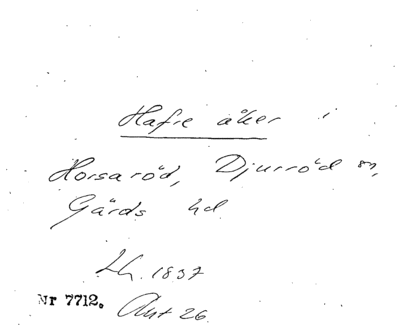 Hafre åker i
Horsaröd, Djurröd sn,
Gärds hd
Lh. 1837
Nr 7712. Akt 26